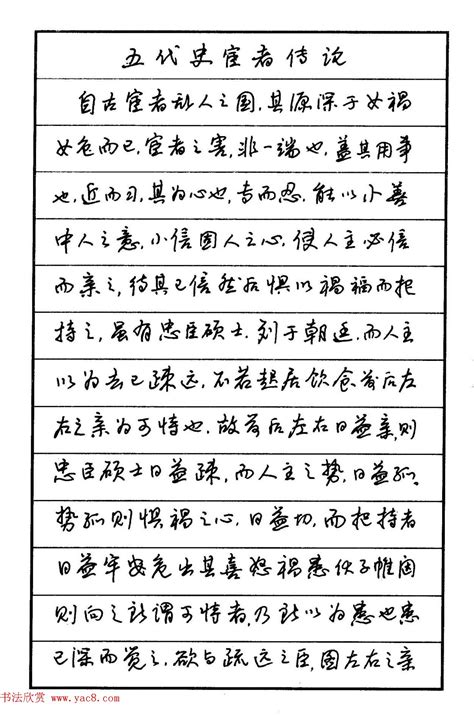 五代史宦者传论
自古宦者乱人之国,其源深于女祸
女色而已,宦者之害,非一端也,盖其用事
也,近而习,其为心也,专而忍.能以小善
中人之意,小信固人之心,使人主必信
而亲之,待其已信然后惧以祸福而把
持之,虽有忠臣硕士.列于朝廷.而人主
以为去己疏远.不若起居饮食前后左
右之亲为可恃也.故前后左右日益亲,则
忠臣硕士日益疏,而人主之势,日益孤.
势孤则惧祸之心.日益切,而把持者
日益牢安危出其喜怒祸患伏于帷闼
则向之所谓可恃者,乃所以为患也患
已深而觉之.欲与疏远之臣,图左右之亲
书法欣赏 www.yac8.com